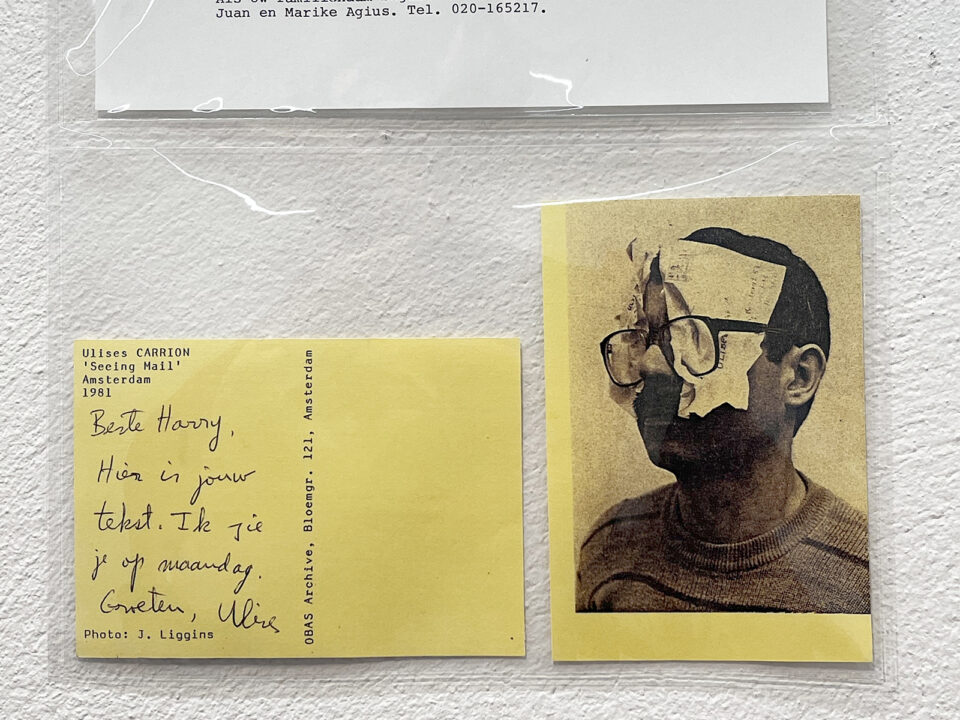 Juan en Marike Agius. Tel. 020-165217.
Ulises CARRION
'Seeing Mail'
Amsterdam
1981
Beste Harry,
Hier is jouw
tekst. Ik zie
je op maandag.
Groeten, Ulises
Photo: J. Liggins
OBAS Archive, Bloemgr. 121, Amsterdam